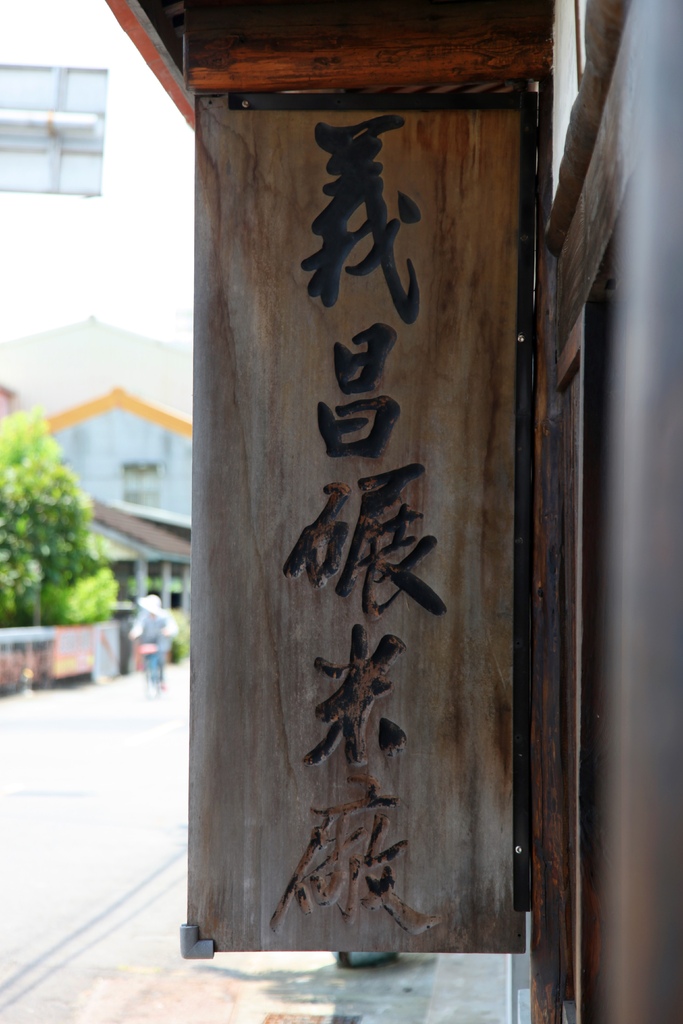 義昌碾米廠